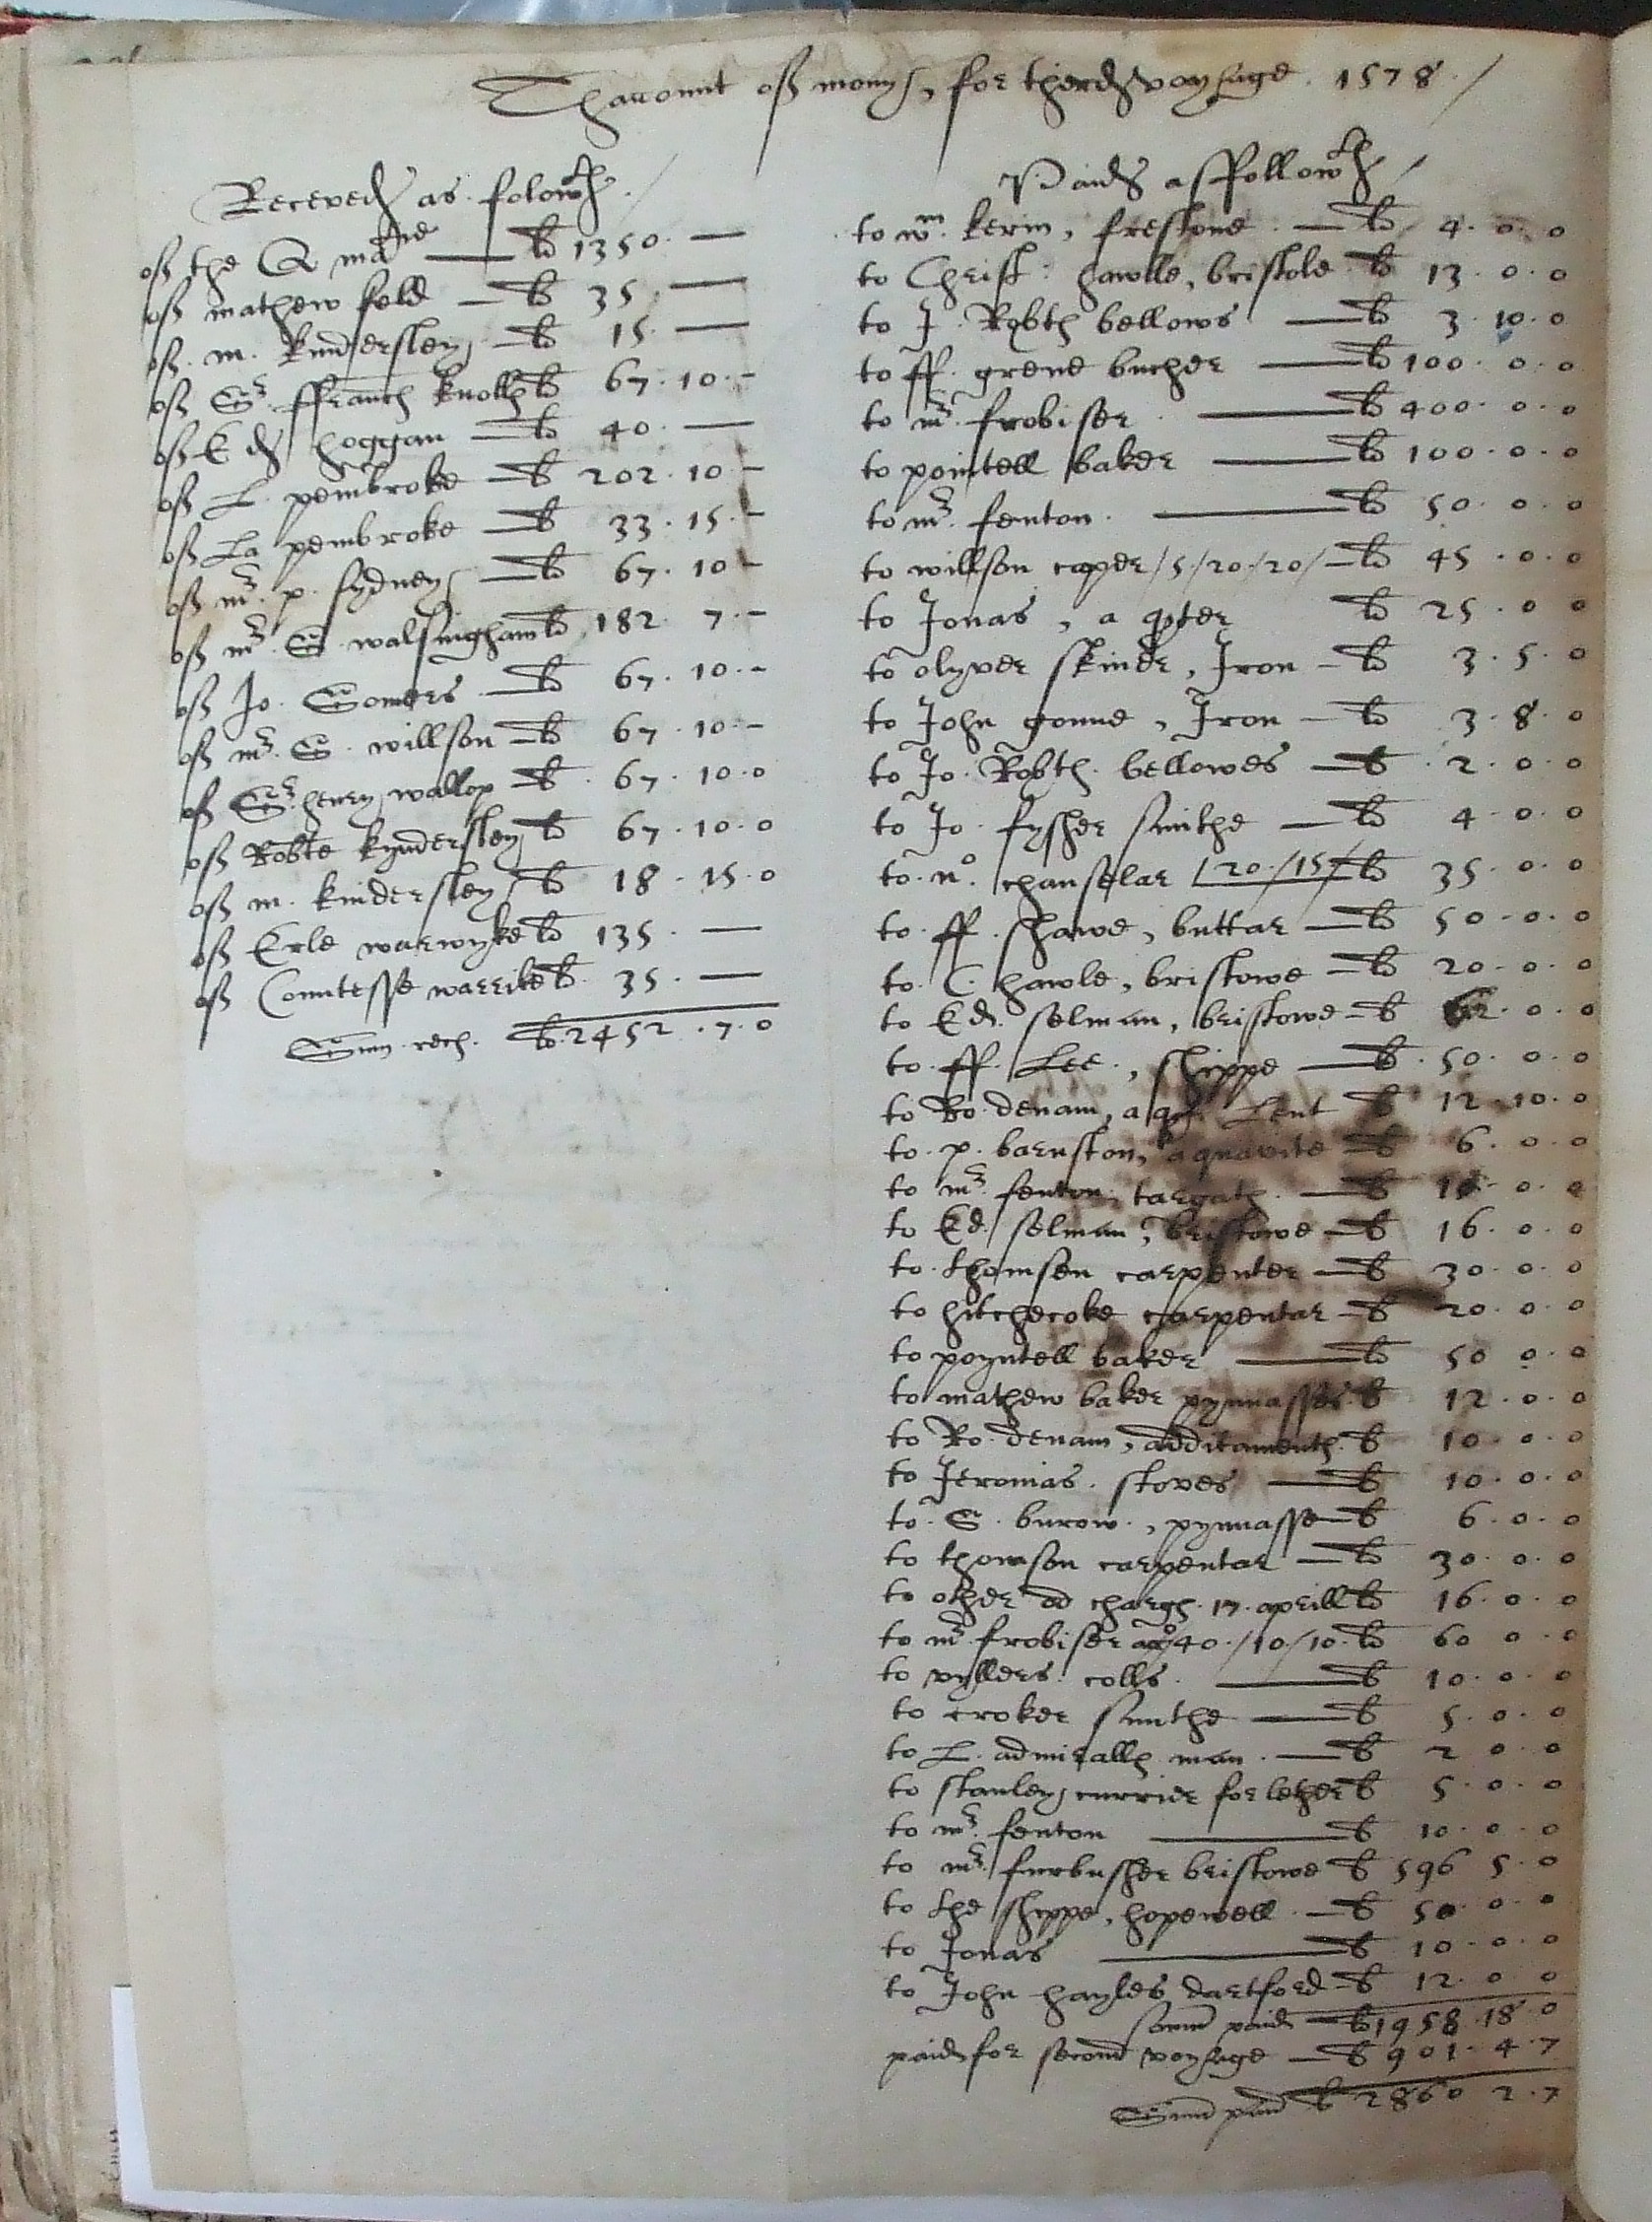 Thaccount of monys, for therd voyhage. 1578.
Receved as folowth.
of the Q matie — li 1350. —
of mathew feld — li 35. —
of. m. kyndersley — li 15. —
of Sr. ffraunces knolles li 67.10.-
of Ed hoggan — li 40. —
of L. pembroke — li 202.10.-
of La pembroke — li 33.15.-
of mr. p. sydney — li 67.10-
of mr. S. walsingham li 182.7.-
of Jo. Somers — li 67.10.-
of mr. S. willson — li 67.10.-
of Sr. henry wallop — li 67.10.0
of Robte kyndersley li 67.10.0
of m. kindersley li 18.15.0
of Erle warwyke li 135. —
of Countesse warrike li 35. —
Sum rech. li 2452.7.0
Paid as ffolowth
to wm. kerin, frestone — li 4.0.0
to Christ: hawlle, bristole li 13.0.0
to J. Robts bellows — li 3.10.0
to ff. grene bucher — li 100.0.0
to mr. frobiser — li 400.0.0
to pointell baker — li 100.0.0
to mr. fenton. — li 50.0.0
to willson coper /5/20./20/ — li 45.0.0
to Jonas, a qrter li 25.0.0
to olyver skiner, Iron — li 3.5.0
to John gonne, Iron — li 3.8.0
to Jo. Robts. bellowes — li 2.0.0
to Jo. fysher smithe — li 4.0.0
to. n. chanselar /20./15/ li 35.0.0
to. ff. shawe, buttar — li 50.0.0
to. C. hawle, bristowe — li 20.0.0
to Ed. selman, bristowe — li .0.0
to. ff. Lee., shippe — li 50.0.0
to Ro. denam, a Lent li 12.10.0
to. p. barnston, aquavite — li 6.0.0
to mr. fenton, targats. — li .0.0
to Ed. selman, bristowe — li 16.0.0
to. thomson carpenter — li 30.0.0
to hitchcoke carpentar — li 20.0.0
to poyntell baker — li 50 0.0
to mathew baker pynnasses li 12.0.0
to Ro. denam, additaments. li 10.0.0
to Jeronias. stoves — li 10.0.0
to. S. burow., pynnasse — li 6.0.0
to thomson carpentar — li 30.0.0
to other od charges. 17. aprill li 16.0.0
to mr. frobiser 40./10/10. li 60 0.0
to vyllers. colls. — li 10.0.0
to croker smithe — li 5.0.0
to L. admiralls man. — li 2 0.0
to stanley currier for lether li 5.0.0
to mr. fenton — li 10.0.0
to mr. furbusher bristowe li 596 5.0
to the shippe, hopewell. — li 50.0.0
to Jonas — li 10.0.0
to John hayles dartford — li 12.0 0
somm paid — li 1958.18.0
paid for second voyhage — li 901.4.7
Summ paid li 2860 2.7